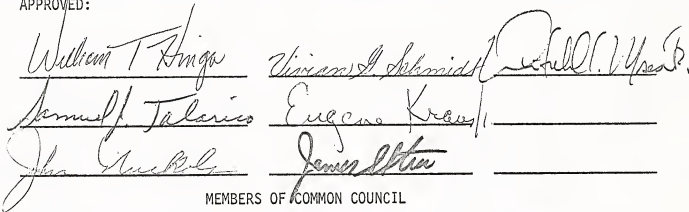 APPROVED:
William T Hinga Vivian G. Schmidt
Samuel J. Talarico Eugene Kraus
John Nuckols James
MEMBERS OF COMMON COUNCIL